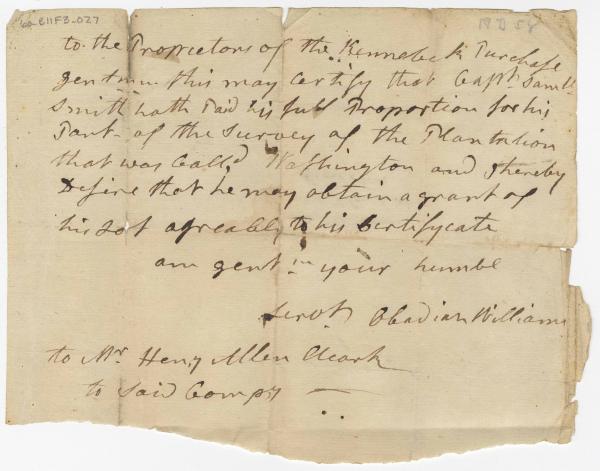 60-E11F3-027
to the Proprietors of the Kennebeck Purchase
gentmn this may Certify that Capt. Samll
Smith hath Paid his full Proportion for his
Part of the Survey of the Plantation
that was Calld Washington and I hereby
Desire that he may obtain a grant of
his Lot agreably to his Certifycate
am gentmn your humbl
Servt Obadiah Williams
to Mr Henry Allen Cleark
to Said Compy